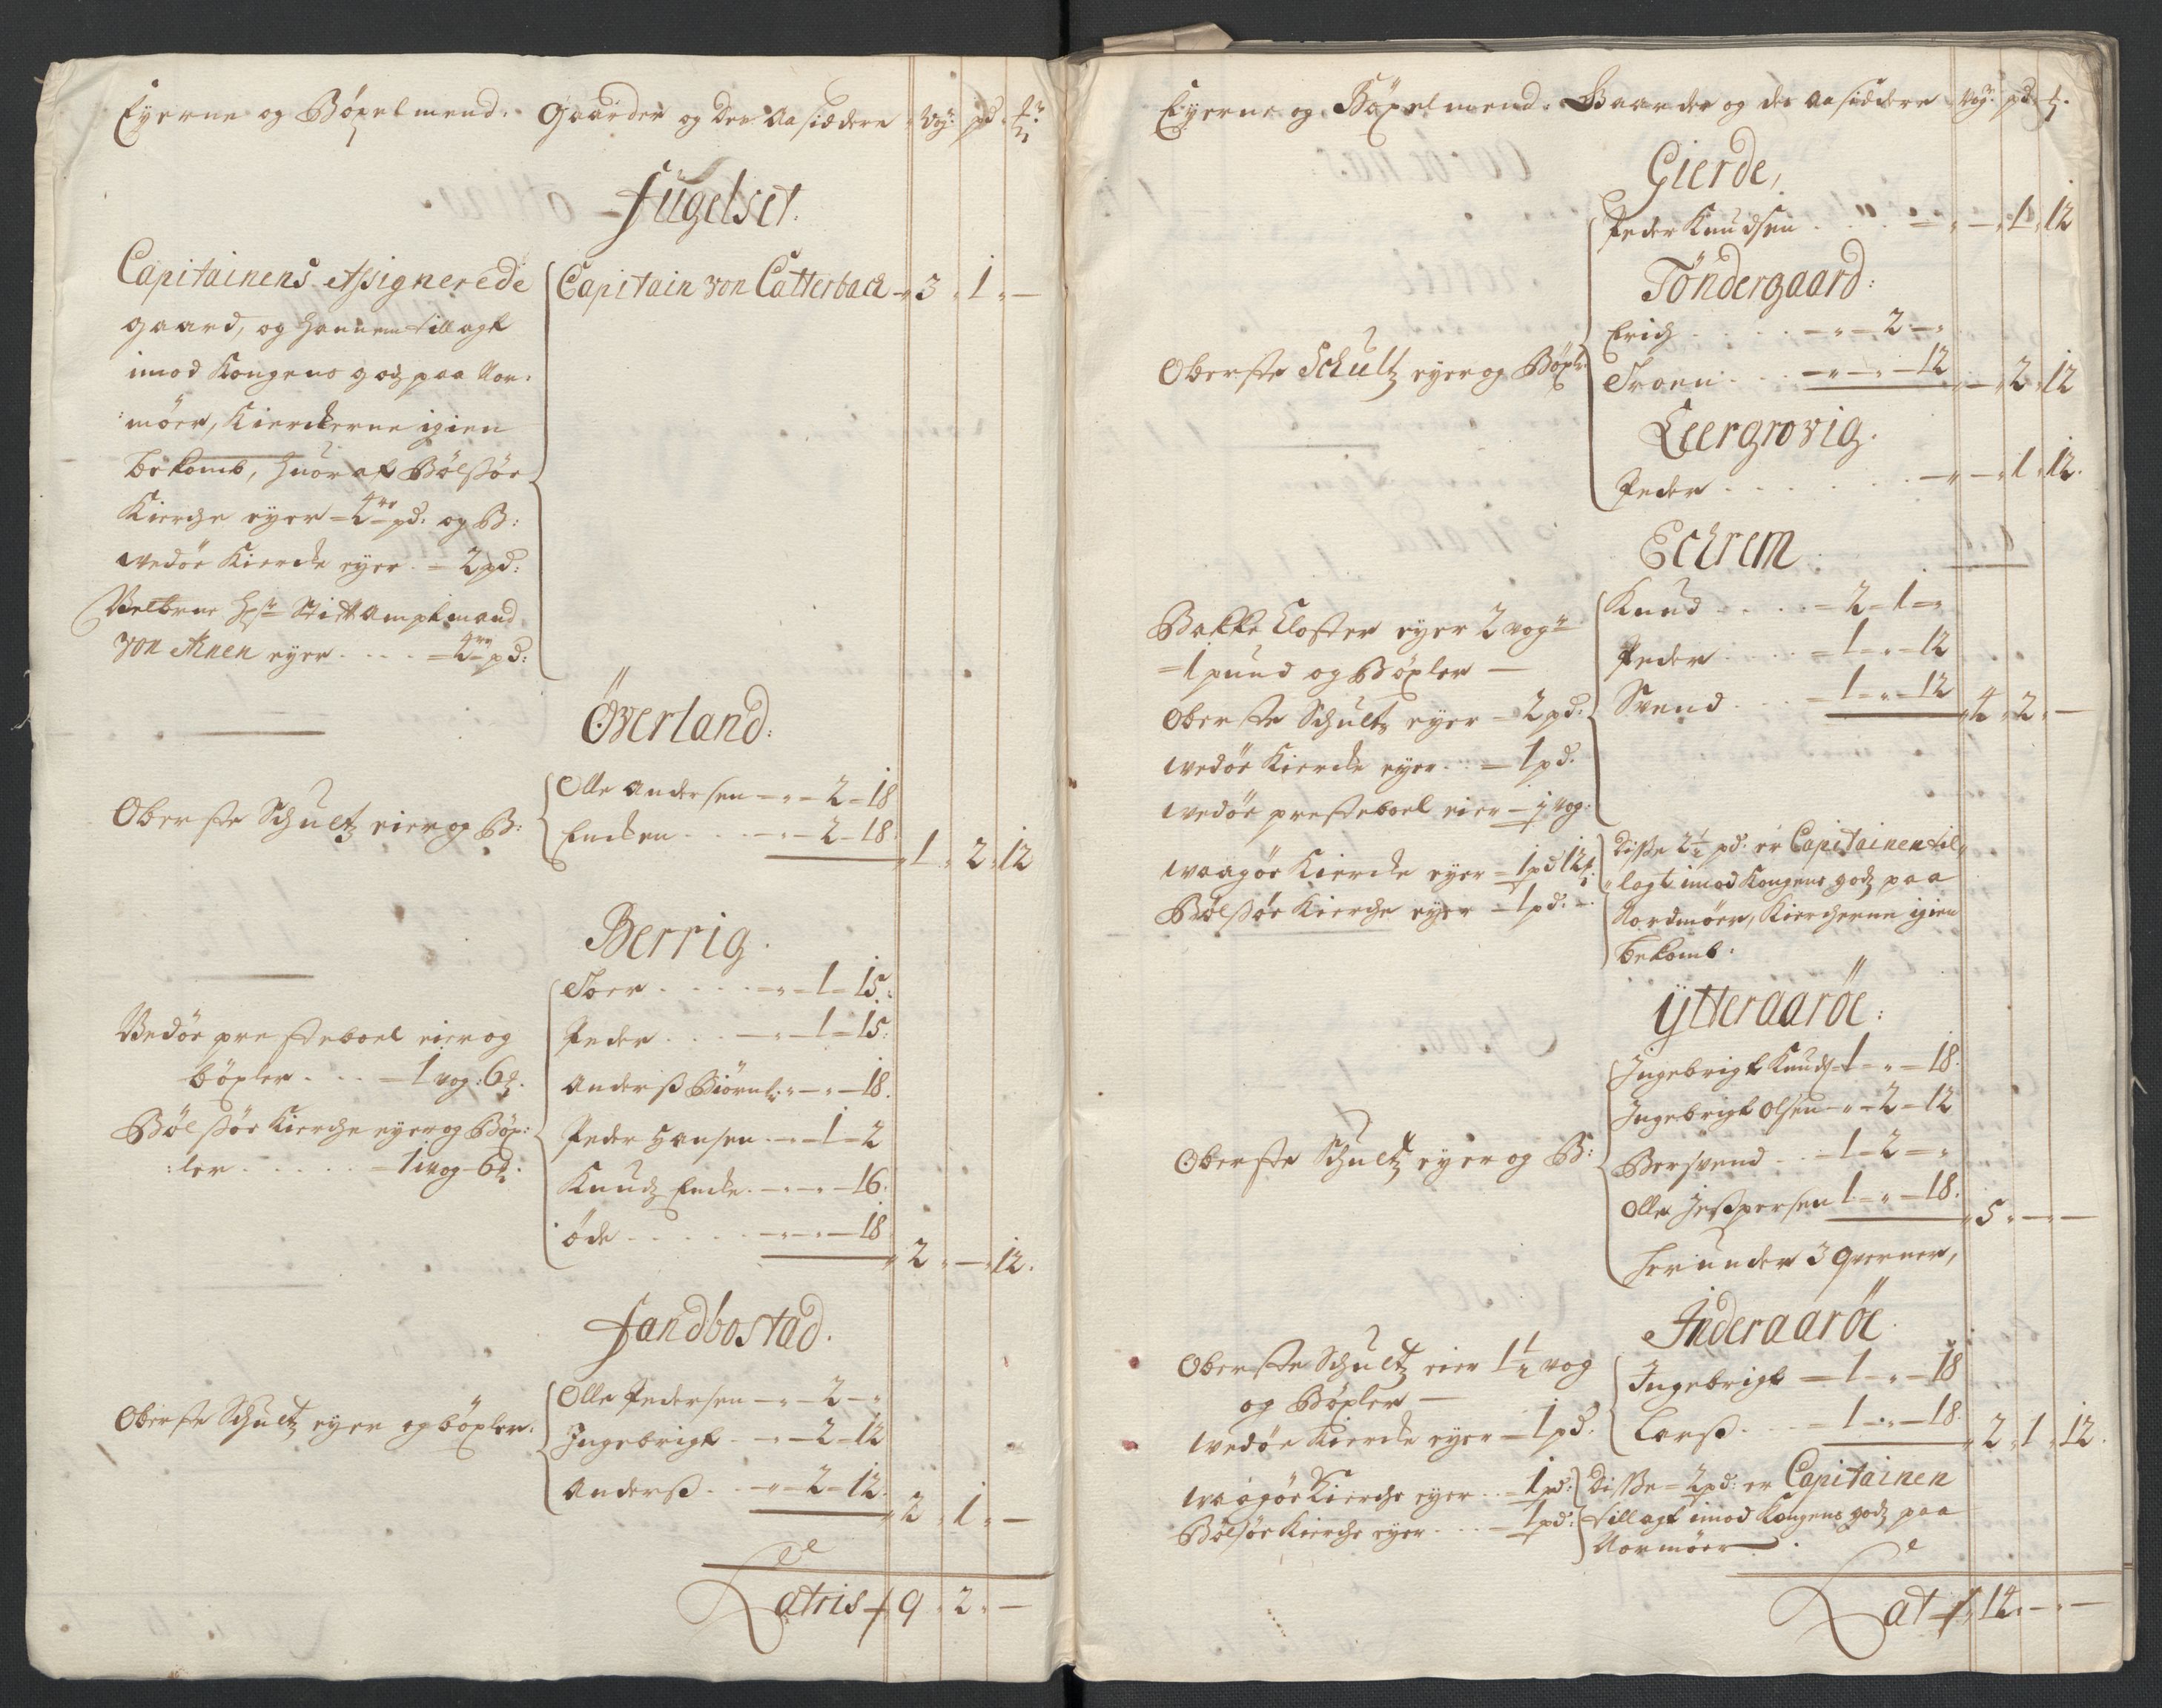 Eyerne og Böxelmend. Gaarder og Der Aasiædere Vog: pd:
Fugelset.
Capitainens Assignerede
gaard, og hannem tillagt
imod Kongens godz paa Nor-
:möer, Kierckerne igien
bekomb, huoraf Bölssöe
Kierche eyer pd: og B:
wedöe Kiercke eyer. = 2 pd:
Velbrne Hr Stiftamptmand
von Anen eyer . . . . pd:
Capitain von Catterbach - 3 " 1 " —
Överland:
Oberste Schultz eier og B:
Olle Andersen — " — 2 — 18
Encken . . . — " — 2 — 18.
1 " 2 " 12
Berrig.
Vedöe presteboel eier og
böxler . . . — 1 vog: 6
Bölssöe Kierche eyer og Böx:
:ler . . . . . = 1 wog - 6
Toer . . . . — " — 1 — 15.
Peder . . . — " — 1 — 15:
Anderss Biörns: " — " — 18.
Peder Hansen — " — 1 — 2
Knudz Encke. — " — " — 16.
öde . . . . . — " — " — 18
2 " — " 12.
Sandbostad.
Oberste Schultz eyer og böxler.
Olle Pedersen — " — 2 — "
Ingebrigt . . — " — 2 — 12
Anderss . . — " — 2 — 12.
2 " 1 " —
Latris 9 " 2 " —
Eyerne og Böxelmend. Gaarder og der Aasiædere Vog: pd:
Gierde,
Peder Knudsen . . . . — " — " 1 " 12
Töndergaard:
Oberste Schultz eyer og Böxl:
Erich . . . . . — " — 2 — "
Troen . . . — " — " — 12
— " 2 " 12
Leergrovig.
Peder . . . . . . . — " — " 1 " 12.
Echrem
Bakke Closter eyer 2 vogr
= 1 pund og Böxler —
Oberste Schultz eyer = 2 pd:
wedöe Kiercke eyer . . = 1 pd.
wedöe presteboel eier — vog:
waagöe Kiercke eyer = 1 pd 12
Bölssöe Kierche eyer — 1 pd. —
Knud . . . . = 2 — 1 — "
Peder . . . . = 1 — " — 12
Svend . . . = 1 — " — 12
4 " 2 " —
Disse 2½ pd: er Capitainen til
"lagt imod Kongens godz paa
Nordmöer, Kiercherne igien
bekomb:
Ytteraaröe:
Oberste Schultz eyer og B:
Ingebrigt Knuds= 1 — " — 18.
Ingebrigt Olsen — " — 2 — 12
Bersvend . . — 1 — 2 — "
Olle Jesspersen 1 — " — 18.
5 " — " —
Herunder 3 qverner,
Inderaaröe.
Oberste Schultz eier 1½ vog
og Böxler —
wedöe Kiercke eyer — 1 pd.
waagöe Kierche eyer . . = 1 pd:
Bölsöe Kierche eyer . . . = 1 pd:
Ingebrigt — 1 — " — 18
Larss . . . = 1 — " — 18.
2 " 1 " 12.
Disse = 2 pd: er Capitainen
tillagt imod Kongens godz paa
Normöer.
Lat 14 " — " —